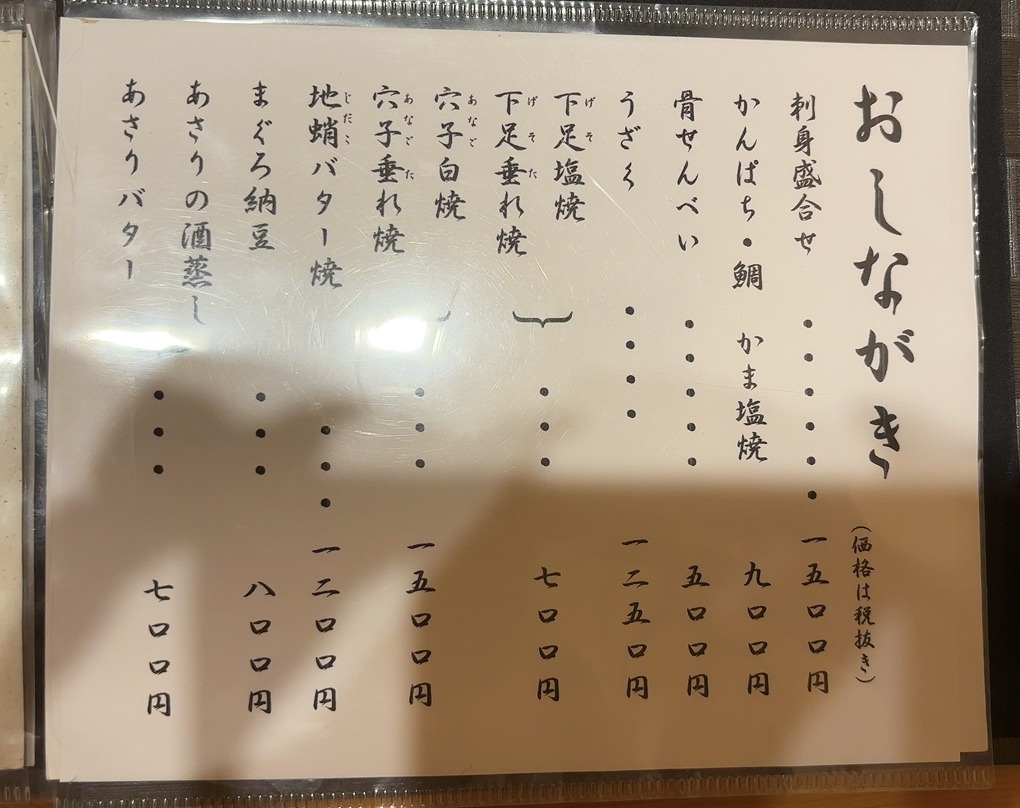 おしながき
(価格は税抜き)
刺身盛合せ・・・・・・一五〇〇円
かんぱち・鯛 かま塩焼 九〇〇円
骨せんべい・・・・・五〇〇円
うざく・・・・一二五〇円
下足塩焼
げそ
下足垂れ焼
げそた
・・・七〇〇円
穴子白焼
あなご
穴子垂れ焼
あなごた
・・・一五〇〇円
地蛸バター焼・・・一二〇〇円
じだこ
まぐろ納豆・・・八〇〇円
あさりの酒蒸し
あさりバター
・・・七〇〇円